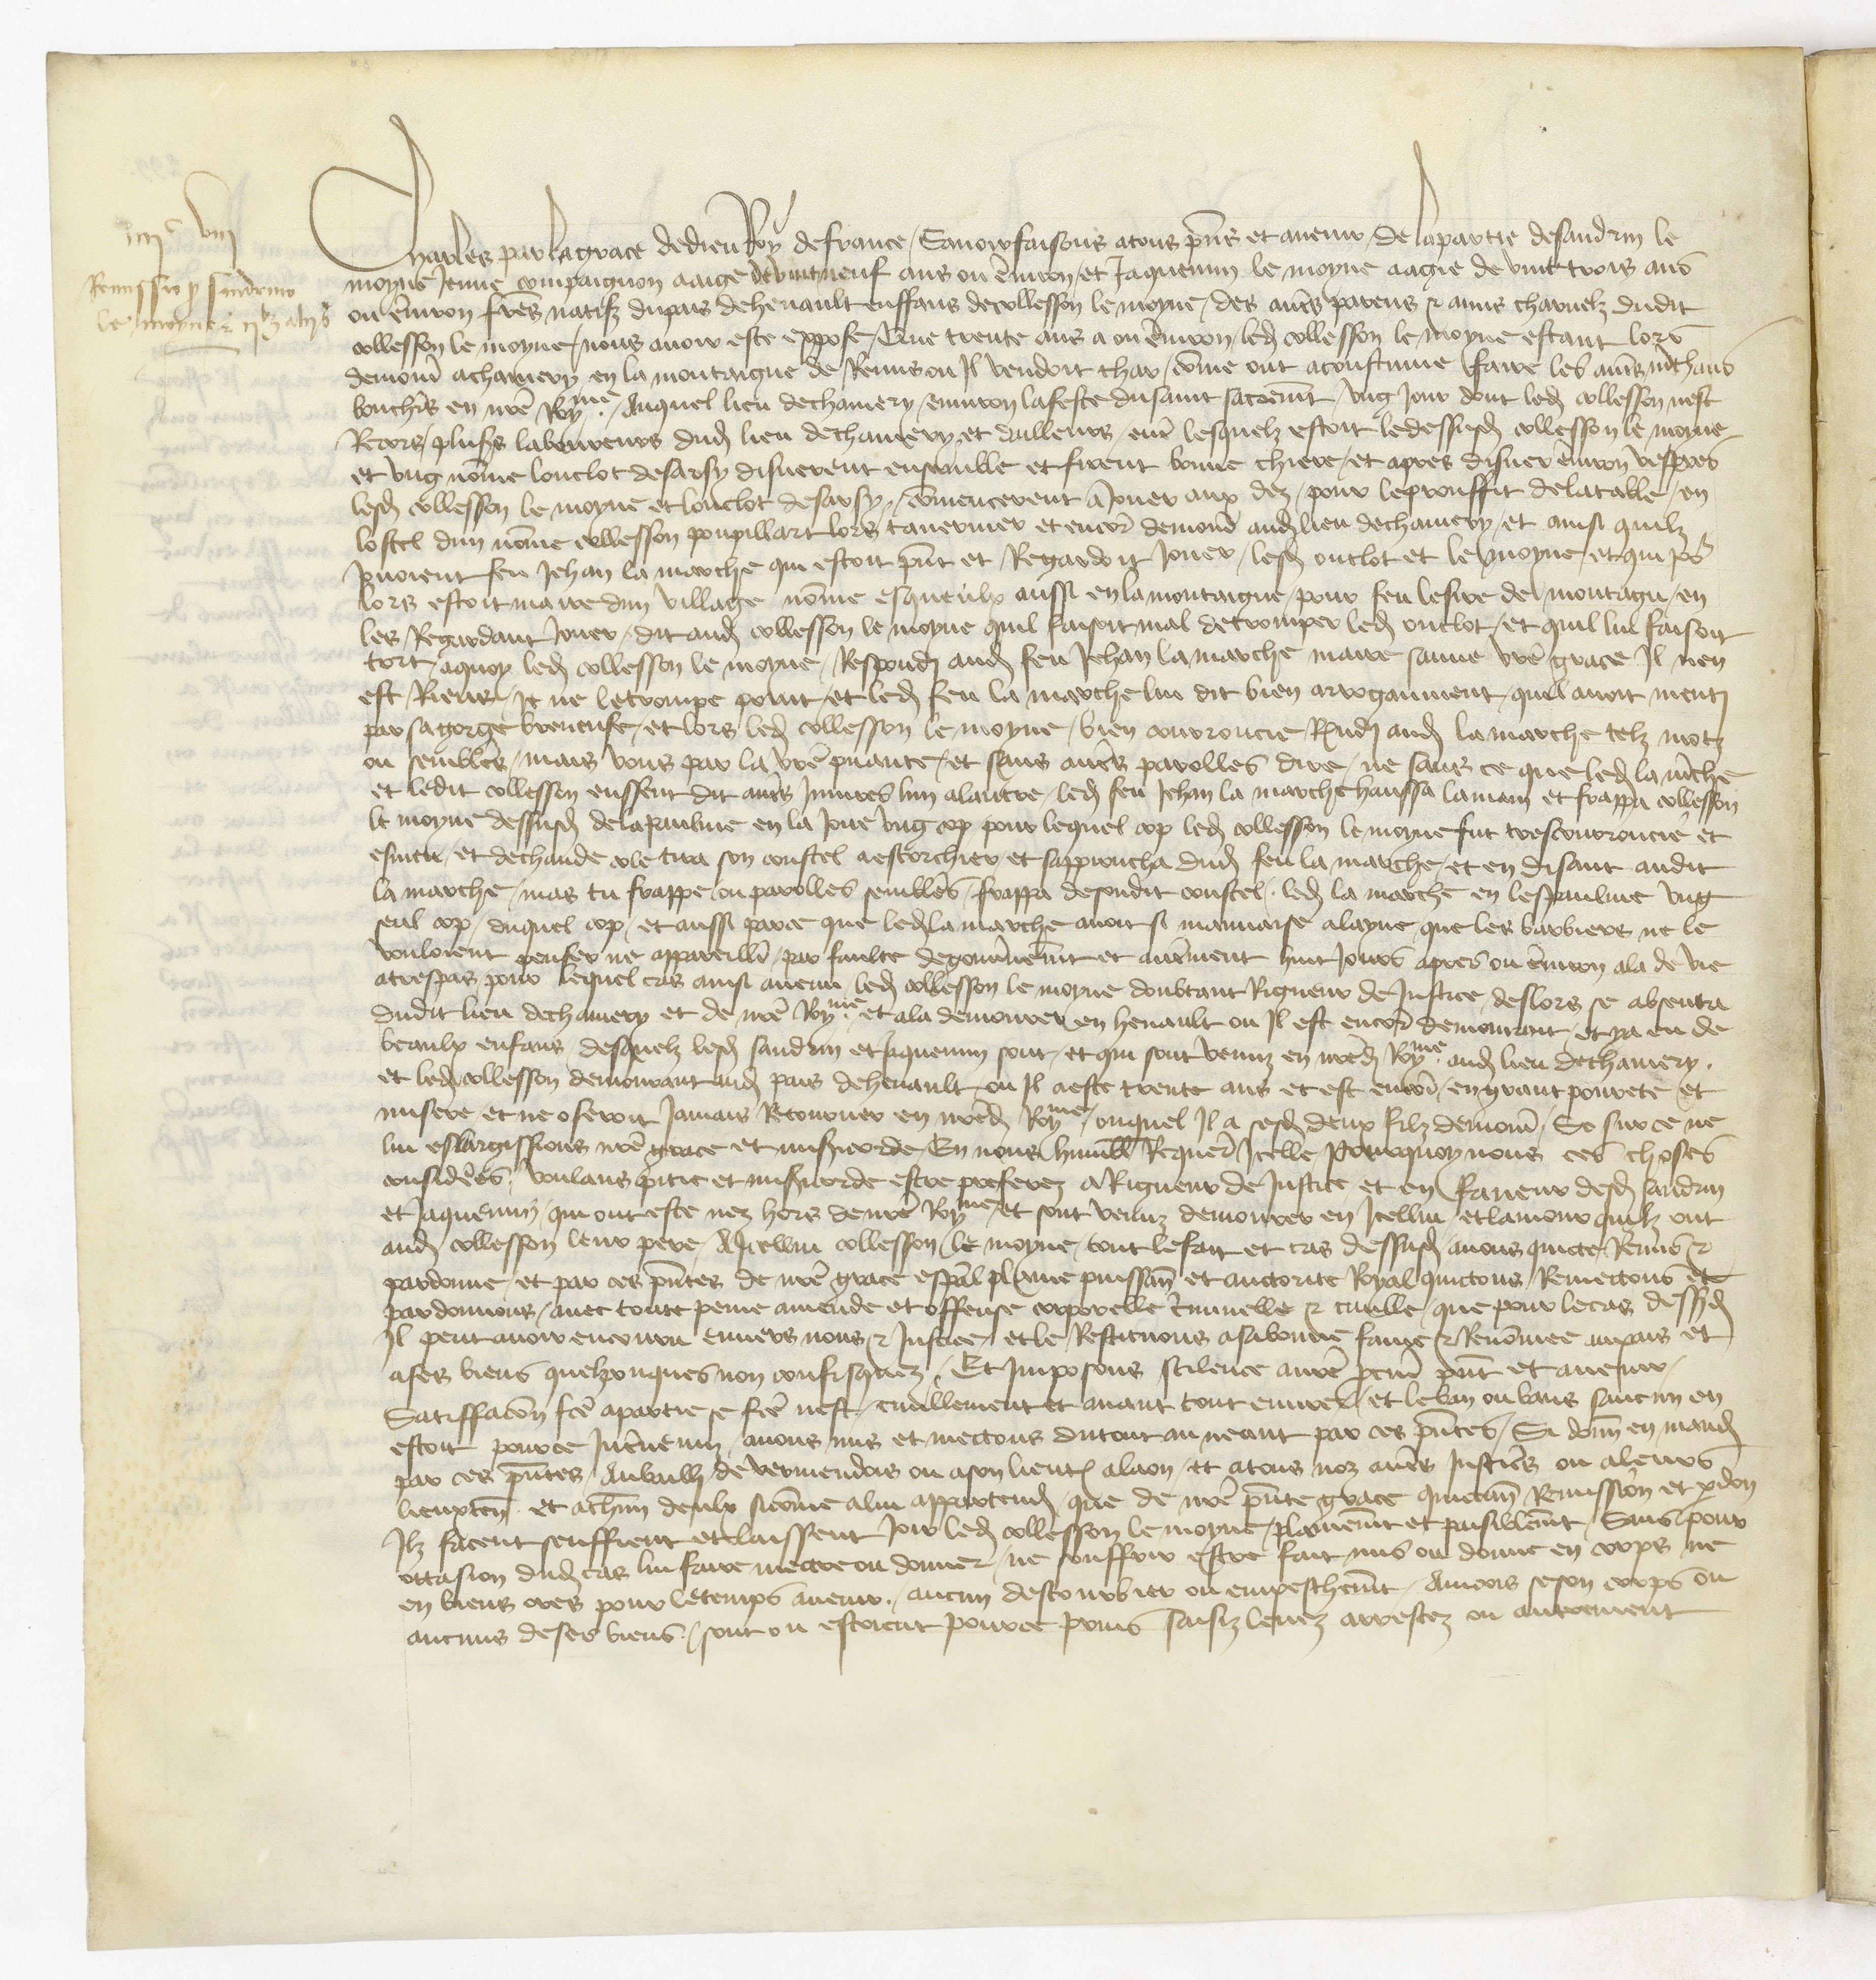 iiijc viij
Remissio pro sandrino
le moyne et
Charles par la grace de dieu Roy de france / Sauoir faisons a tous pns et auenir / De la partie de sandrin le
moyne Jeune compaignon aaige de vint neuf ans ou enuiron / et Jaquemin le moyne aagie de vint trois ans
ou enuiron freres natifz du pais de henault enffans de collesson le moyne / des autres parens & amis charnelz dudit
collesson le moyne / nous auoir este expose / Que trente ans a ou enuiron / led collesson le moyne estant lors
demour a chamery en la montaigne de Reims ou Il vendoit char / comme ont acoustume faire les autres mchans
bouchers en nre Royme / Auquel lieu de chamery / enuiron la feste du saint sacremt / vng Jour dont led collesson nest
Recors / plusrs laboureurs dud lieu de chamery et dailleurs / entre lesquelz estoit le dessusd collesson le moyne
et vng nomme louclot de sarsy disnerent ensemble et firent bonne chiere / et apres disner enuiron vespres
lesd collesson le moyne et louclot de sarsy / commencerent a Jouer aux dez / pour le prouffit de la table / en
lostel dun nomme collesson poupillart lors tauernier et encor demour aud lieu de chamery / et ainsi quilz
Jouoient feu Jehan la marche qui estoit pnt et Regardoit Jouer / lesd ouclot et le moyne / et qui pour
lors estoit maire dun village nomme esqueulx aussi en la montaigne / pour feu le sire de montagu / en
les Regardant Jouer / dit aud collesson le moyne quil faisoit mal de tromper led ouclot / et quil lui faisoit
tort aquoy led collesson le moyne / Respondj aud feu Jehan la marche maire sauue vre grace Il nen
est Riens / Je ne le trompe point / et led feu la marche lui dit bien arrogaument / quil auoit mentj
par sa gorge breneuse / et lors led collesson le moyne / bien courroucie / Rpondj aud la marche telz motz
ou sembles / mais vous par la vre puante / et sans autres parolles dire / ne sans ce que led la mrche
et ledit collesson eussent dit autres Iniures lun a lautre / led feu Jehan la marche haussa la main et frappa collesson
le moyne dessusd de la paulme en la Joue vng cop pour lequel cop led collesson le moyne fut trescourroucie et
esmeu / et de chaude cole tira son coustel a escorchier / et sapproucha dud feu la marche / et en disant audit
la marche / mas tu frappe / ou parolles sembles / frappa de sondit coustel / led la marche en lespaulme vng
seul cop / duquel cop / et aussi parce que led la marche auoit si mauuaise alayne / que les barbiers ne le
vouloient penser ne appareillr / par faulte de gouuernemt et autrement huit Jours apres ou enuiron ala de vie
a trespas pour lequel cas ainsi auenu / led collesson le moyne doubtant Rigueur de Justice / deslors se absenta
dudit lieu de chamery et de nre Royme / et ala demourer en henault ou Il est encor demourant / et ya eu de
beaulx enfans / desquelz lesd sandrin et Jaquemin sont / et qui sont venuz en nred Royme aud lieu de chamery .
et led collesson demourant aud pais de henault ou Il a este trente ans et est encor / en grant pourete et
misere et ne oseroit Jamais Retourner en nred Royme / ouquel Il a sesd deux filz demour / Se sur ce ne
lui eslargissions nre grace et misericorde / En nous humblemt Requert Icelle Pourquoy nous ces choses
considerees . voulans pitie et misericorde estre preferez a Rigueur de Justice / et en faueur desd sandrin
et Jaquemin / qui ont este nez hors de nre Royme / et sont venuz demourer en Icellui / et lamour quilz ont
aud collesson leur pere / A Icellui collesson le moyne / tout le fait et cas dessusd / auons quicte Remis &
pardonne / et par ces pntes de nre grace espal plaine puissan et auctorite Royal quictons Remectons et
pardonnons / auec toute peine amende et offense corporelle criminelle & ciuille / que pour le cas dessusd
Il peut auoir encouru enuers nous & Justice / et le Restituons a sa bonne fame & Renommee au pais et
a ses biens quelzconques non confisquez / Et Imposons scilence a nre procur pnt et auenir /
Satiffacon fce a partie se fce nest / ciuillement et auant tout euure / et le ban ou bans saucun en
estoit pour ce Interuenu / auons mis et mectons du tout au neant par ces pntes / Si donn en mand
par ces pntes / Au bailli de vermendois ou a son lieut a laon / et a tous noz autres Justicrs ou a leurs
lieuxten et a chun deulx sicomme a lui appartend / que de nre pnte grace quictan Remission et pardon
Ilz facent seuffrent et laissent Joir led collesson le moyne / plainemt et paisiblemt / Sans pour
occasion dud cas lui faire mectre ou donner / ne souffrir estre fait mis ou donne en corps ne
en biens ores pour le temps auenir . aucun destourbier ou empeschemt / Aincois se son corps ou
aucuns de ses biens / sont ou estoient pour ce prins saisiz leuez arrestez ou autrement